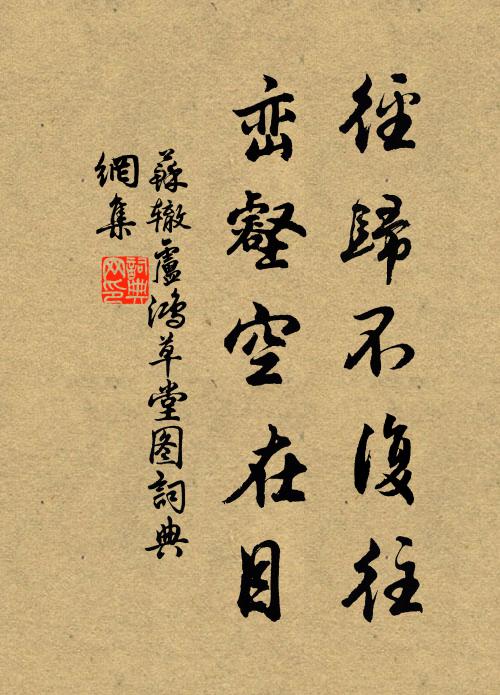 径歸不復往
峦壑空在目
蘇辙盧鴻草堂图詞典
網集
詞典
网印